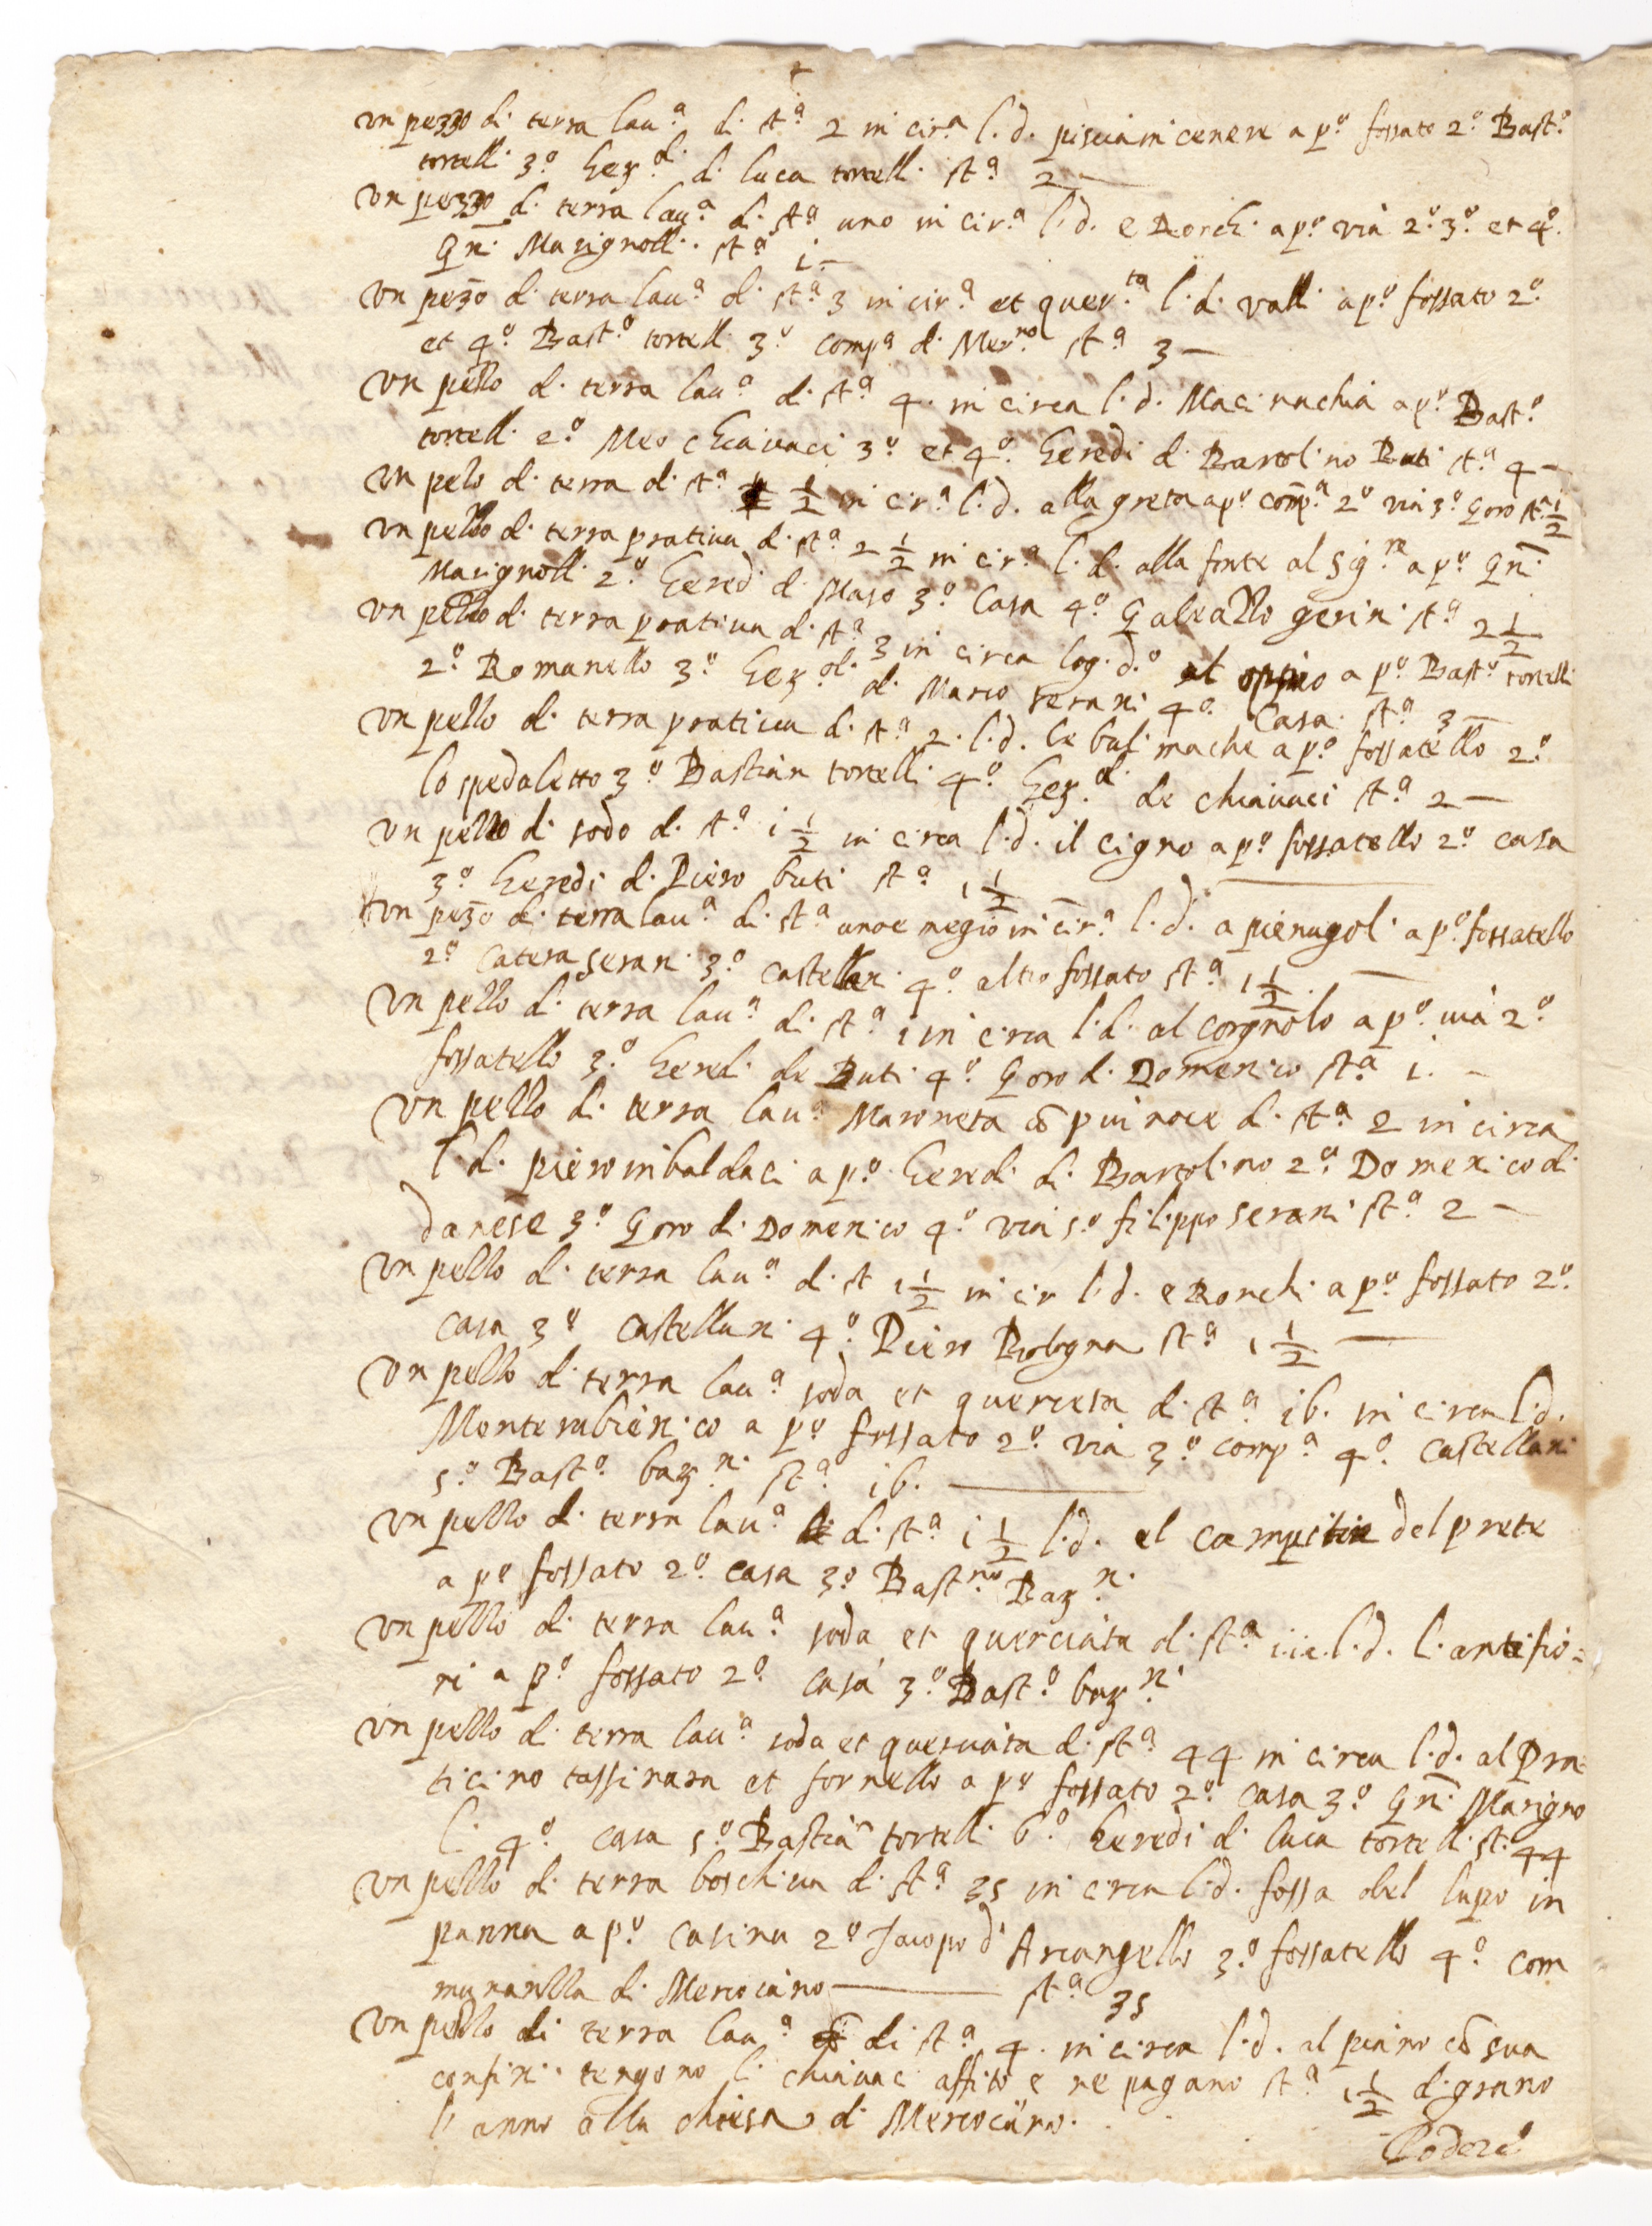 un pezzo di terra lau.ª di st.ª 2 in cir.ª l. d. pisciainicenere a p.º fossato 2.º Bast.º
tortelli 3.º her.di di luca tortelli st.ª 2 —
un pezzo di terra lau.ª di st.ª uno in cir.ª l. d. e Ronchi a p.º via 2.º 3.º et 4.º
Gñi Marignolli. st.ª i —
un pezzo di terra lau.ª di st.ª 3 in cir.ª et quer.ta l. d. valli a p.º fossato 2.º
et 4.º Bast.º tortelli 3.º comp.ª di Mer.no st.ª 3 —
un pezzo di terra lau.ª di st.ª 4. in circa l. d. Macinachia a p.º Bast.º
tortelli 2.º Meo chiavaci 3.º et 4.º heredi di Bartolino Buti st.ª 4 —
un pezo di terra di st.ª 1/2 in cir.ª l. d. alla greta a p.º comp.ª 2.º via 3.º Goro st.ª 1/2
un pezzo di terra pratiua di st.ª 2 1/2 in cir.ª l. d. alla fonte al sig.re a p.º Gñi
Marignolli 2.º heredi di Maso 3.º Casa 4.º Galeazzo gerini st.ª 2 1/2
un pezzo di terra pratiua di st.ª 3 in circa log. d.º al oppio a p.º Bast.º tortelli
2.º Romanello 3.º her.di di Marco serani 4.º Casa st.ª 3 —
un pezzo di terra pratiua di st.ª 2. l. d. le bulimache a p.º fossatello 2.º
lo spedaletto 3.º Bastian tortelli 4.º her.di de chiavaci st.ª 2 —
un pezzo di sodo di st.ª i 1/2 in circa l. d. il cigno a p.º fossatello 2.º casa
3.º heredi di Piero buti st.ª i 1/2 —
un pezzo di terra lau.ª di st.ª uno e megio in cir.ª l. d. a pienugoli a p.º fossatello
2.º Catera serani 3.º castellani 4.º altro fossato st.ª i 1/2. —
un pezzo di terra lau.ª di st.ª i in circa l. d. al corgnolo a p.º uia 2.º
fossatello 3.º heredi de Buti 4.º Goro di Domenico st.ª i. —
un pezzo di terra lau.ª Maroneta cõ piu noce di st.ª 2 in circa
l. d. piero inbaldaci a p.º heredi di Bartolino 2.º Domenico di
danese 3.º Goro di Domenico 4.º via 5.º filippo serani st.ª 2 —
un pezzo di terra lau.ª di st i 1/2 in cir l. d. e Ronchi a p.º fossato 2.º
casa 3.º castellani 4.º Piero Bologna st.ª i 1/2 —
un pezzo di terra lau.ª soda et querceta di st.ª i6. in circa l. d.
Monterabienico a p.º fossato 2.º via 3.º comp.ª 4.º castellani
5.º Bast.º bar.ni st.ª i6. —
un pezzo di terra lau.ª di st.ª i 1/2 l. d. el campitin del prete
a p.º fossato 2.º casa 3.º Bast.no Bar.ni
un pezzo di terra lau.ª soda et querciata di st.ª iii. l. d. l. antifio=
ri a p.º fossato 2.º casa 3.º Bast.º bar.ni
un pezzo di terra lau.ª soda et querciata di st.ª 44 in circa l. d. al Pra=
ticino tassinara et fornello a p.º fossato 2.º casa 3.º Gñi Marigno
li 4.º casa 5.º Bastian tortelli 6.º heredi di luca tortelli st. 44
un pezzo di terra boschiua di st.ª 35 in circa l. d. fossa del lupo in
panna a p.º casina 2.º Jacopo d' Arcangello 3.º fossatello 4.º com
munanlla di Mercoiano — st.ª 35
un pezzo di terra lau.ª di st.ª 4. in circa l. d. al piano cõ sua
confini tengono li chiavaci affito e ne pagano st.ª i 1/2 di grano
l' anno alla chiesa di Mercoiano.
Podere